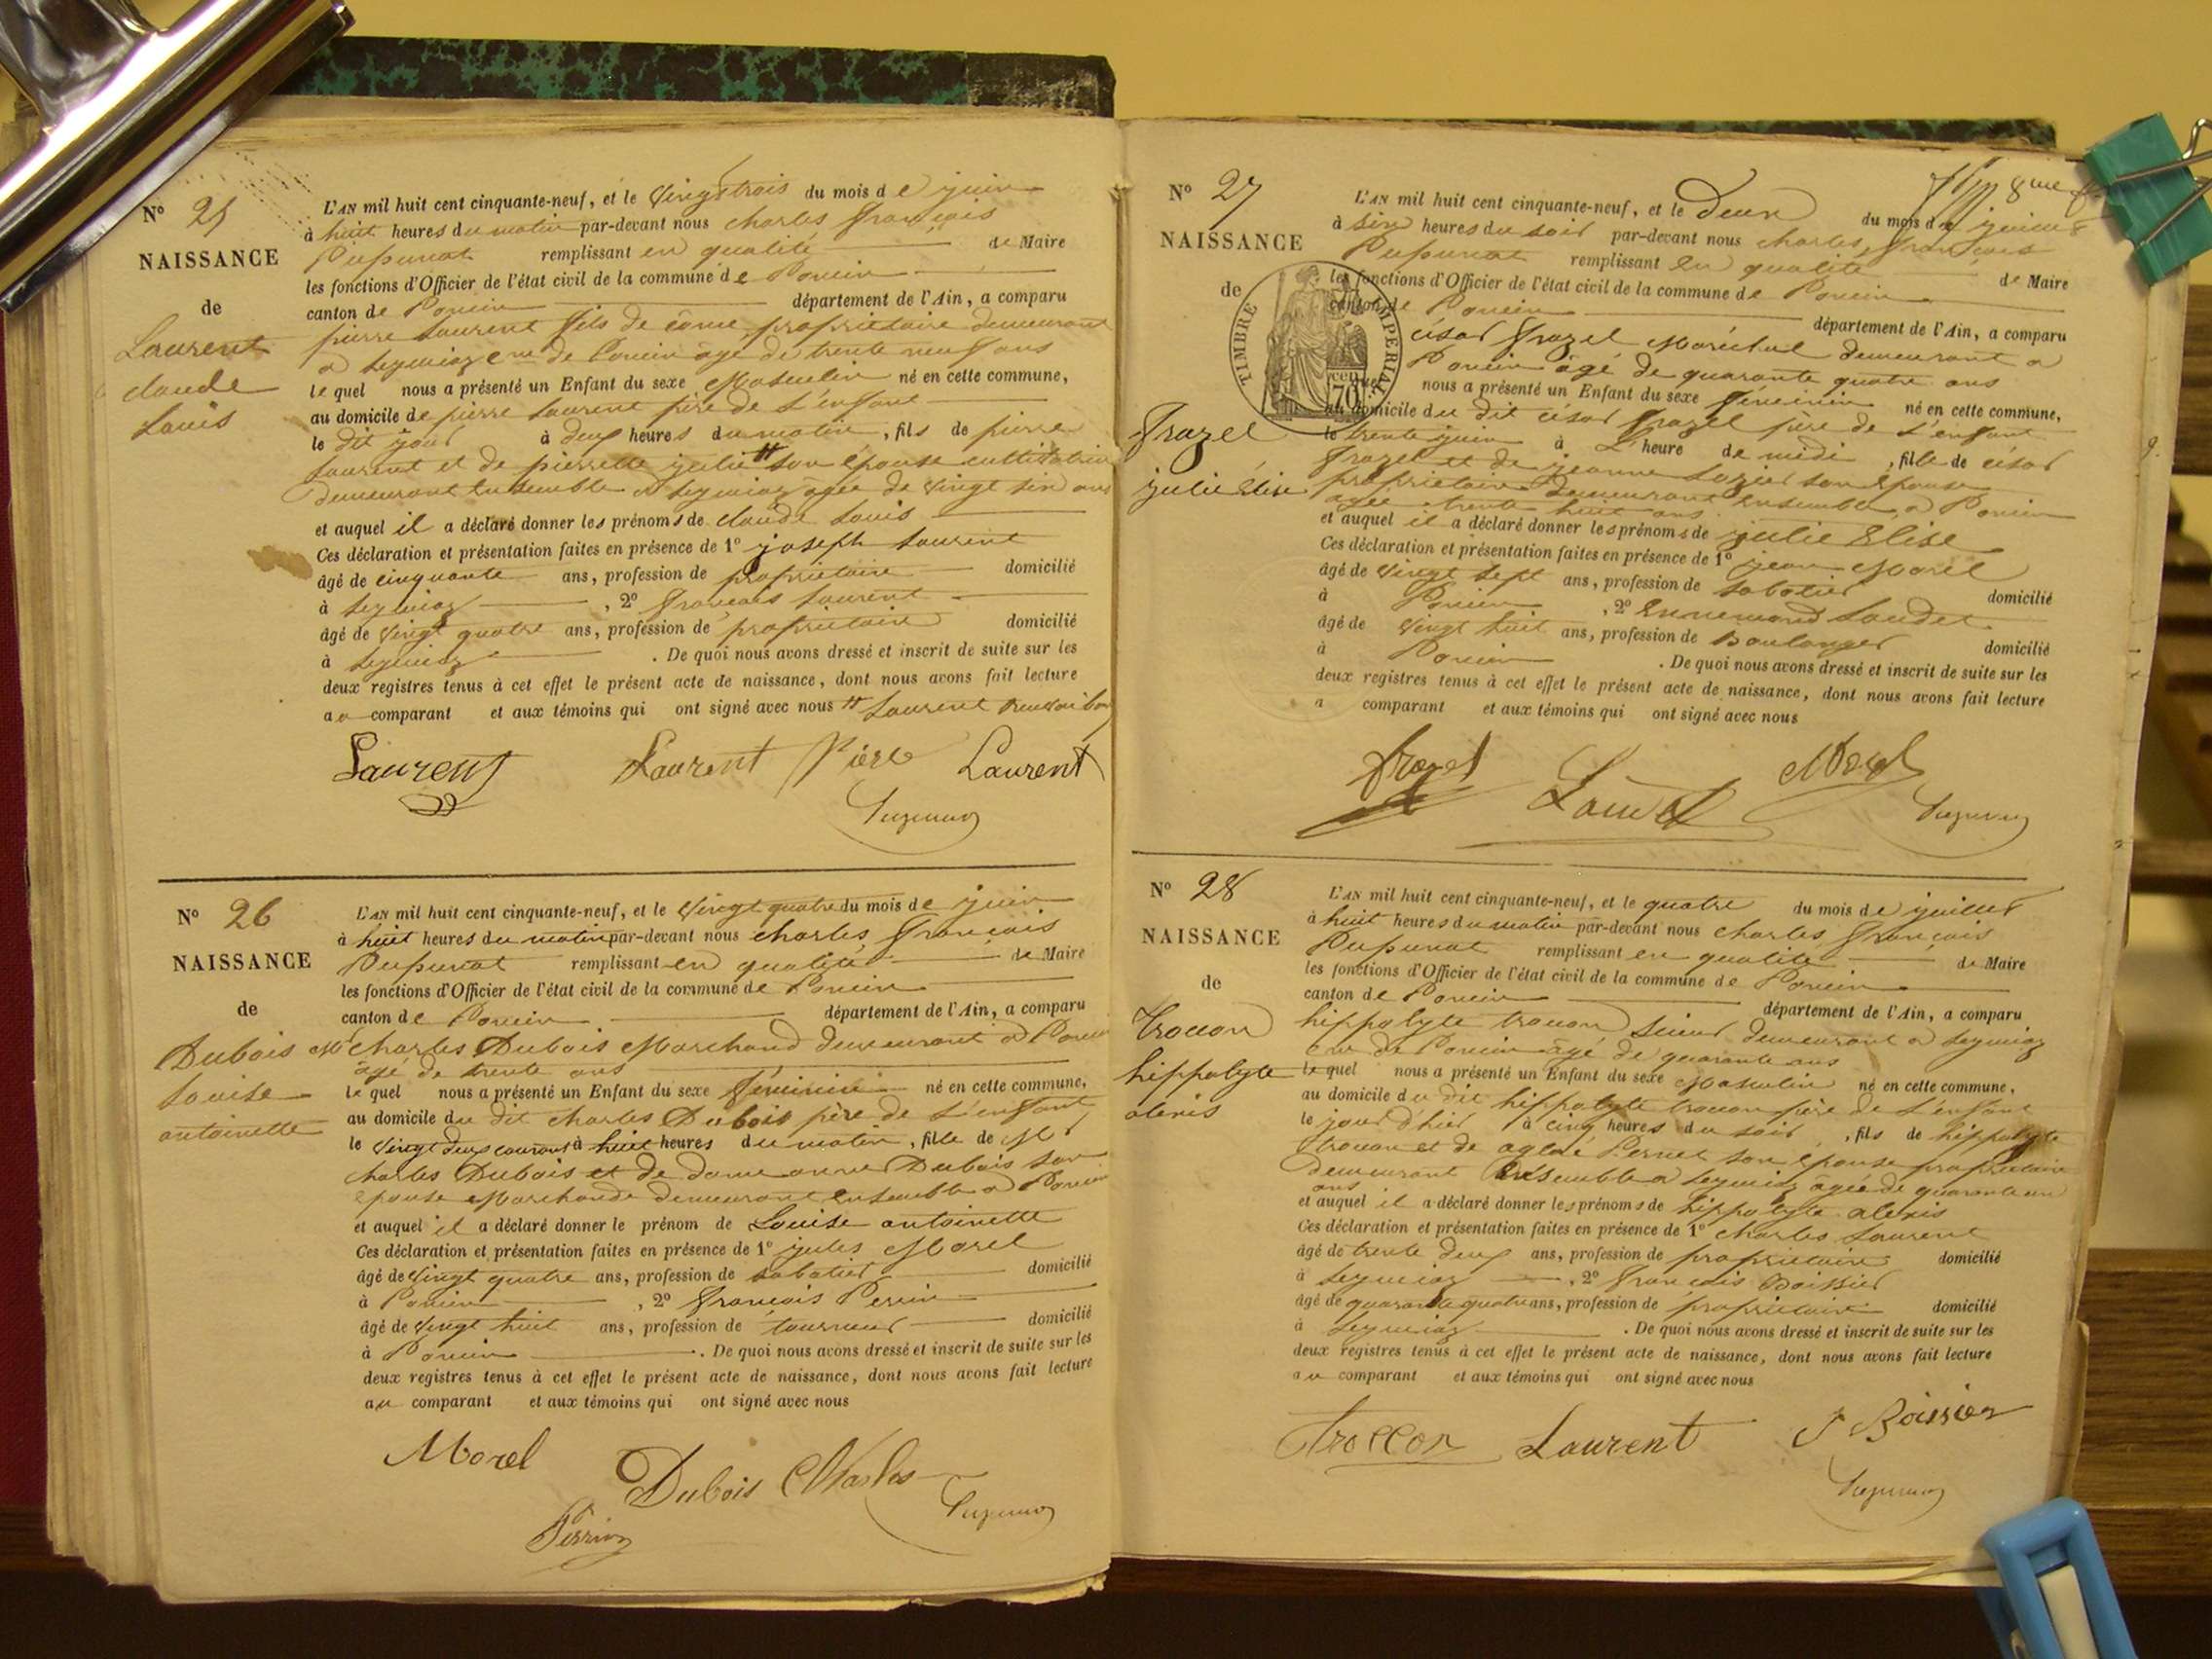 N° 25
NAISSANCE
de
Laurent
claude
Louis
L'AN mil huit cent cinquante-neuf, et le vingt trois du mois de juin
à huit heures du matin par-devant nous charles françois
remplissant en qualité de Maire
les fonctions d'Officier de l'état civil de la commune de Poncin
canton de Poncin département de l'Ain, a comparu
pierre Laurent fils de côme propriétaire demeurant
a Leymiaz cne de Poncin âgé de trente neuf ans
lequel nous a présenté un Enfant du sexe Masculin né en cette commune,
au domicile de pierre Laurent père de L'enfant
le dit jour à deux heures du matin, fils de pierre
Laurent et de pierrette julie # son épouse
demeurant Ensemble a Leymiaz âgée de vingt ans
et auquel il a déclaré donner les prénoms de claude Louis
Ces déclaration et présentation faites en présence de 1° joseph Laurent
âgé de cinquante ans, profession de propriétaire domicilié
à Leymiaz, 2° françois Laurent
âgé de vingt quatre ans, profession de propriétaire domicilié
à Leymiaz. De quoi nous avons dressé et inscrit de suite sur les
deux registres tenus à cet effet le présent acte de naissance, dont nous avons fait lecture
au comparant et aux témoins qui ont signé avec nous # Laurent renvoi bon
Laurent Laurent Pière Laurent
N° 26
NAISSANCE
de
Dubois
Louise
antoinette
L'AN mil huit cent cinquante-neuf, et le vingt quatre du mois de juin
à huit heures du matin par-devant nous charles françois
remplissant en qualité de Maire
les fonctions d'Officier de l'état civil de la commune de Poncin
canton de Poncin département de l'Ain, a comparu
Mr Charles Dubois Marchand demeurant a Poncin
âgé de trente ans
lequel nous a présenté un Enfant du sexe féminin né en cette commune,
au domicile du dit charles Dubois père de L'enfant
le vingt deux courant à huit heures du matin, fille de Mr
charles Dubois et de dame anne Dubois son
épouse Marchande demeurant Ensemble a Poncin
et auquel il a déclaré donner le prénom de Louise antoinette
Ces déclaration et présentation faites en présence de 1° jules Morel
âgé de vingt quatre ans, profession de sabotier domicilié
à Poncin, 2° françois Perrin
âgé de vingt huit ans, profession de tourneur domicilié
à Poncin. De quoi nous avons dressé et inscrit de suite sur les
deux registres tenus à cet effet le présent acte de naissance, dont nous avons fait lecture
au comparant et aux témoins qui ont signé avec nous
Morel Dubois Charles
Perrin
N° 27
NAISSANCE
de
TIMBRE IMPERIAL
70
frazel
julie élise
8me
L'AN mil huit cent cinquante-neuf, et le deux du mois de juillet
à six heures du soir par-devant nous charles françois
remplissant en qualité de Maire
les fonctions d'Officier de l'état civil de la commune de Poncin
canton de Poncin département de l'Ain, a comparu
césar frazel Maréchal demeurant a
Poncin âgé de quarante quatre ans
nous a présenté un Enfant du sexe féminin né en cette commune,
au domicile du dit césar frazel père de L'enfant
le trente juin à L'heure de midi, fille de césar
frazel et de jeanne Lozier son épouse
propriétaires demeurant ensemble a Poncin
agée trente huit ans
et auquel il a déclaré donner les prénoms de julie Elise
Ces déclaration et présentation faites en présence de 1° jean Morel
âgé de vingt sept ans, profession de sabotier domicilié
à Poncin, 2° Ennemond Laudet
âgé de vingt huit ans, profession de Boulanger domicilié
à Poncin. De quoi nous avons dressé et inscrit de suite sur les
deux registres tenus à cet effet le présent acte de naissance, dont nous avons fait lecture
a comparant et aux témoins qui ont signé avec nous
frazel Laudet Morel
N° 28
NAISSANCE
de
trocon
hippolyte
alexis
L'AN mil huit cent cinquante-neuf, et le quatre du mois de juillet
à huit heures du matin par-devant nous charles françois
remplissant en qualité de Maire
les fonctions d'Officier de l'état civil de la commune de Poncin
canton de Poncin département de l'Ain, a comparu
hippolyte trocon demeurant a Leymiaz
cne de Poncin âgé de quarante ans
lequel nous a présenté un Enfant du sexe Masculin né en cette commune,
au domicile du dit hippolyte trocon père de L'enfant
le jour d'hier à cinq heures du soir, fils de hippolyte
trocon et de aglaé Pernet son épouse propriétaire
demeurant Ensemble a Leymiaz âgée de quarante un
ans
et auquel il a déclaré donner les prénoms de hippolyte alexis
Ces déclaration et présentation faites en présence de 1° charles Laurent
âgé de trente deux ans, profession de propriétaire domicilié
à Leymiaz, 2° françois Boissier
âgé de quarante quatre ans, profession de propriétaire domicilié
à Leymiaz. De quoi nous avons dressé et inscrit de suite sur les
deux registres tenus à cet effet le présent acte de naissance, dont nous avons fait lecture
au comparant et aux témoins qui ont signé avec nous
Troccon Laurent F Boissier